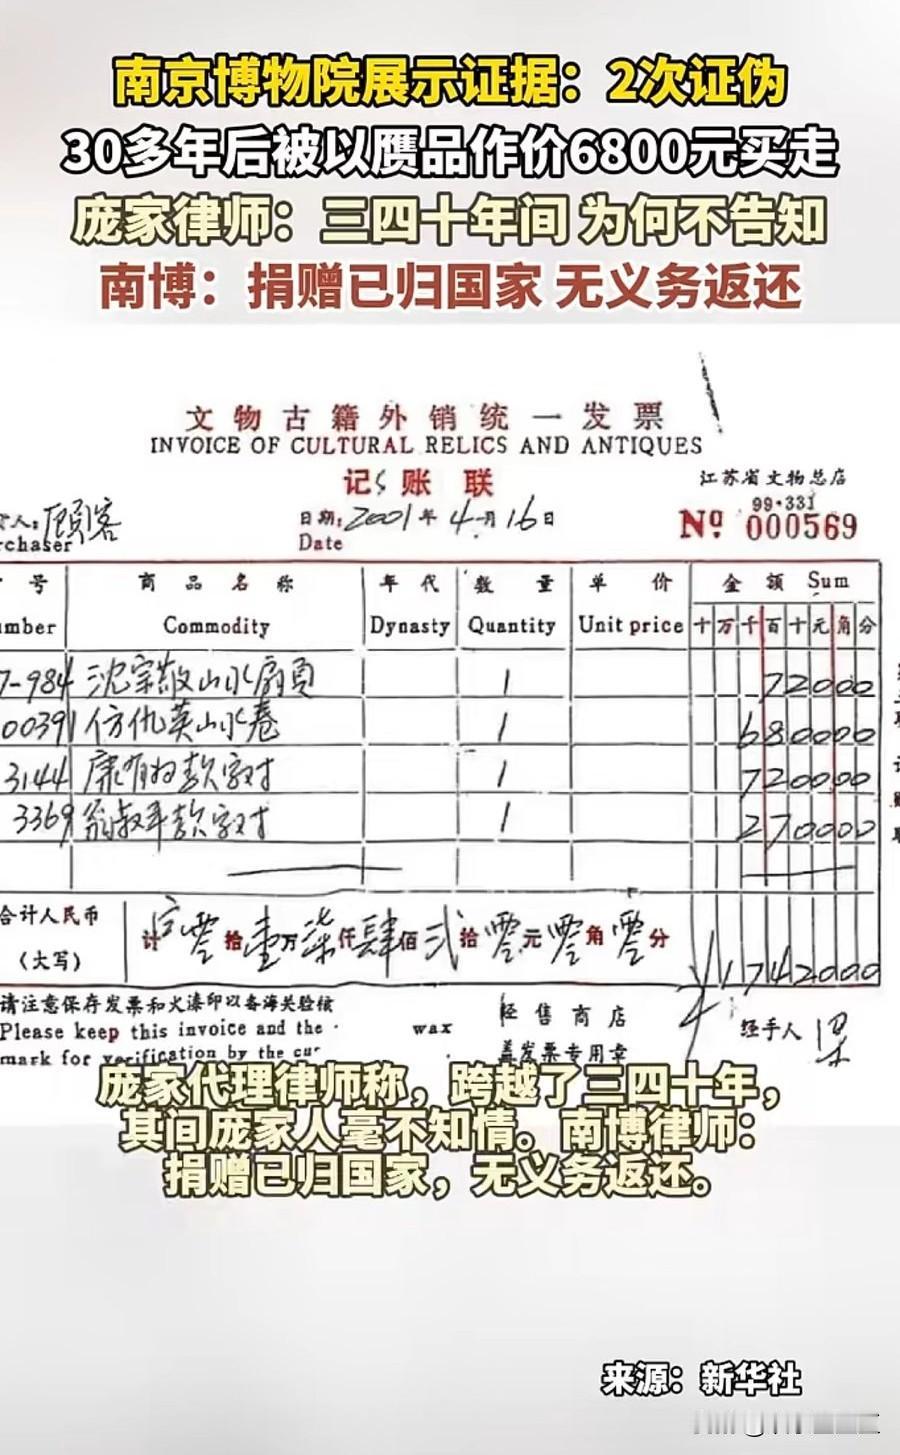 南京博物院展示证据：2次证伪
30多年后被以赝品作价6800元买走
庞家律师：三四十年间 为何不告知
南博：捐赠已归国家 无义务返还
文物古籍外销统一发票
INVOICE OF CULTURAL RELICS AND ANTIQUES
记账联
江苏省文物总店
人：顾客
rchaser
日期：2001年4月16日
Date
99·331
Nº 000569
号 商品名称 年代 数量 单价 金额 Sum
mber Commodity Dynasty Quantity Unit price 十万千百十元角分
7-984 沈宗敬山水扇页 1 72000
00391 仿仇英山水卷 1 680000
3144 康有为款字对 1 720000
3369 翁叔平款字对 1 270000
合计人民币
（大写）
计零拾壹万柒仟肆佰弍拾零元零角零分 ¥1742000
请注意保存发票和火漆印以备海关验核
Please keep this invoice and the wax
mark for verification by the cu
经售商店
盖发票专用章
经手人 梁
庞家代理律师称，跨越了三四十年，
其间庞家人毫不知情。南博律师：
捐赠已归国家，无义务返还。
来源：新华社